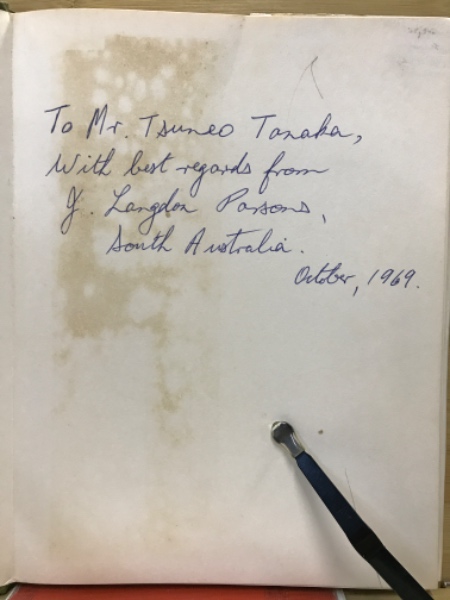 To Mr. Tsuneo Tanaka,
With best regards from
J. Langdon Parsons,
South Australia.
October, 1969.